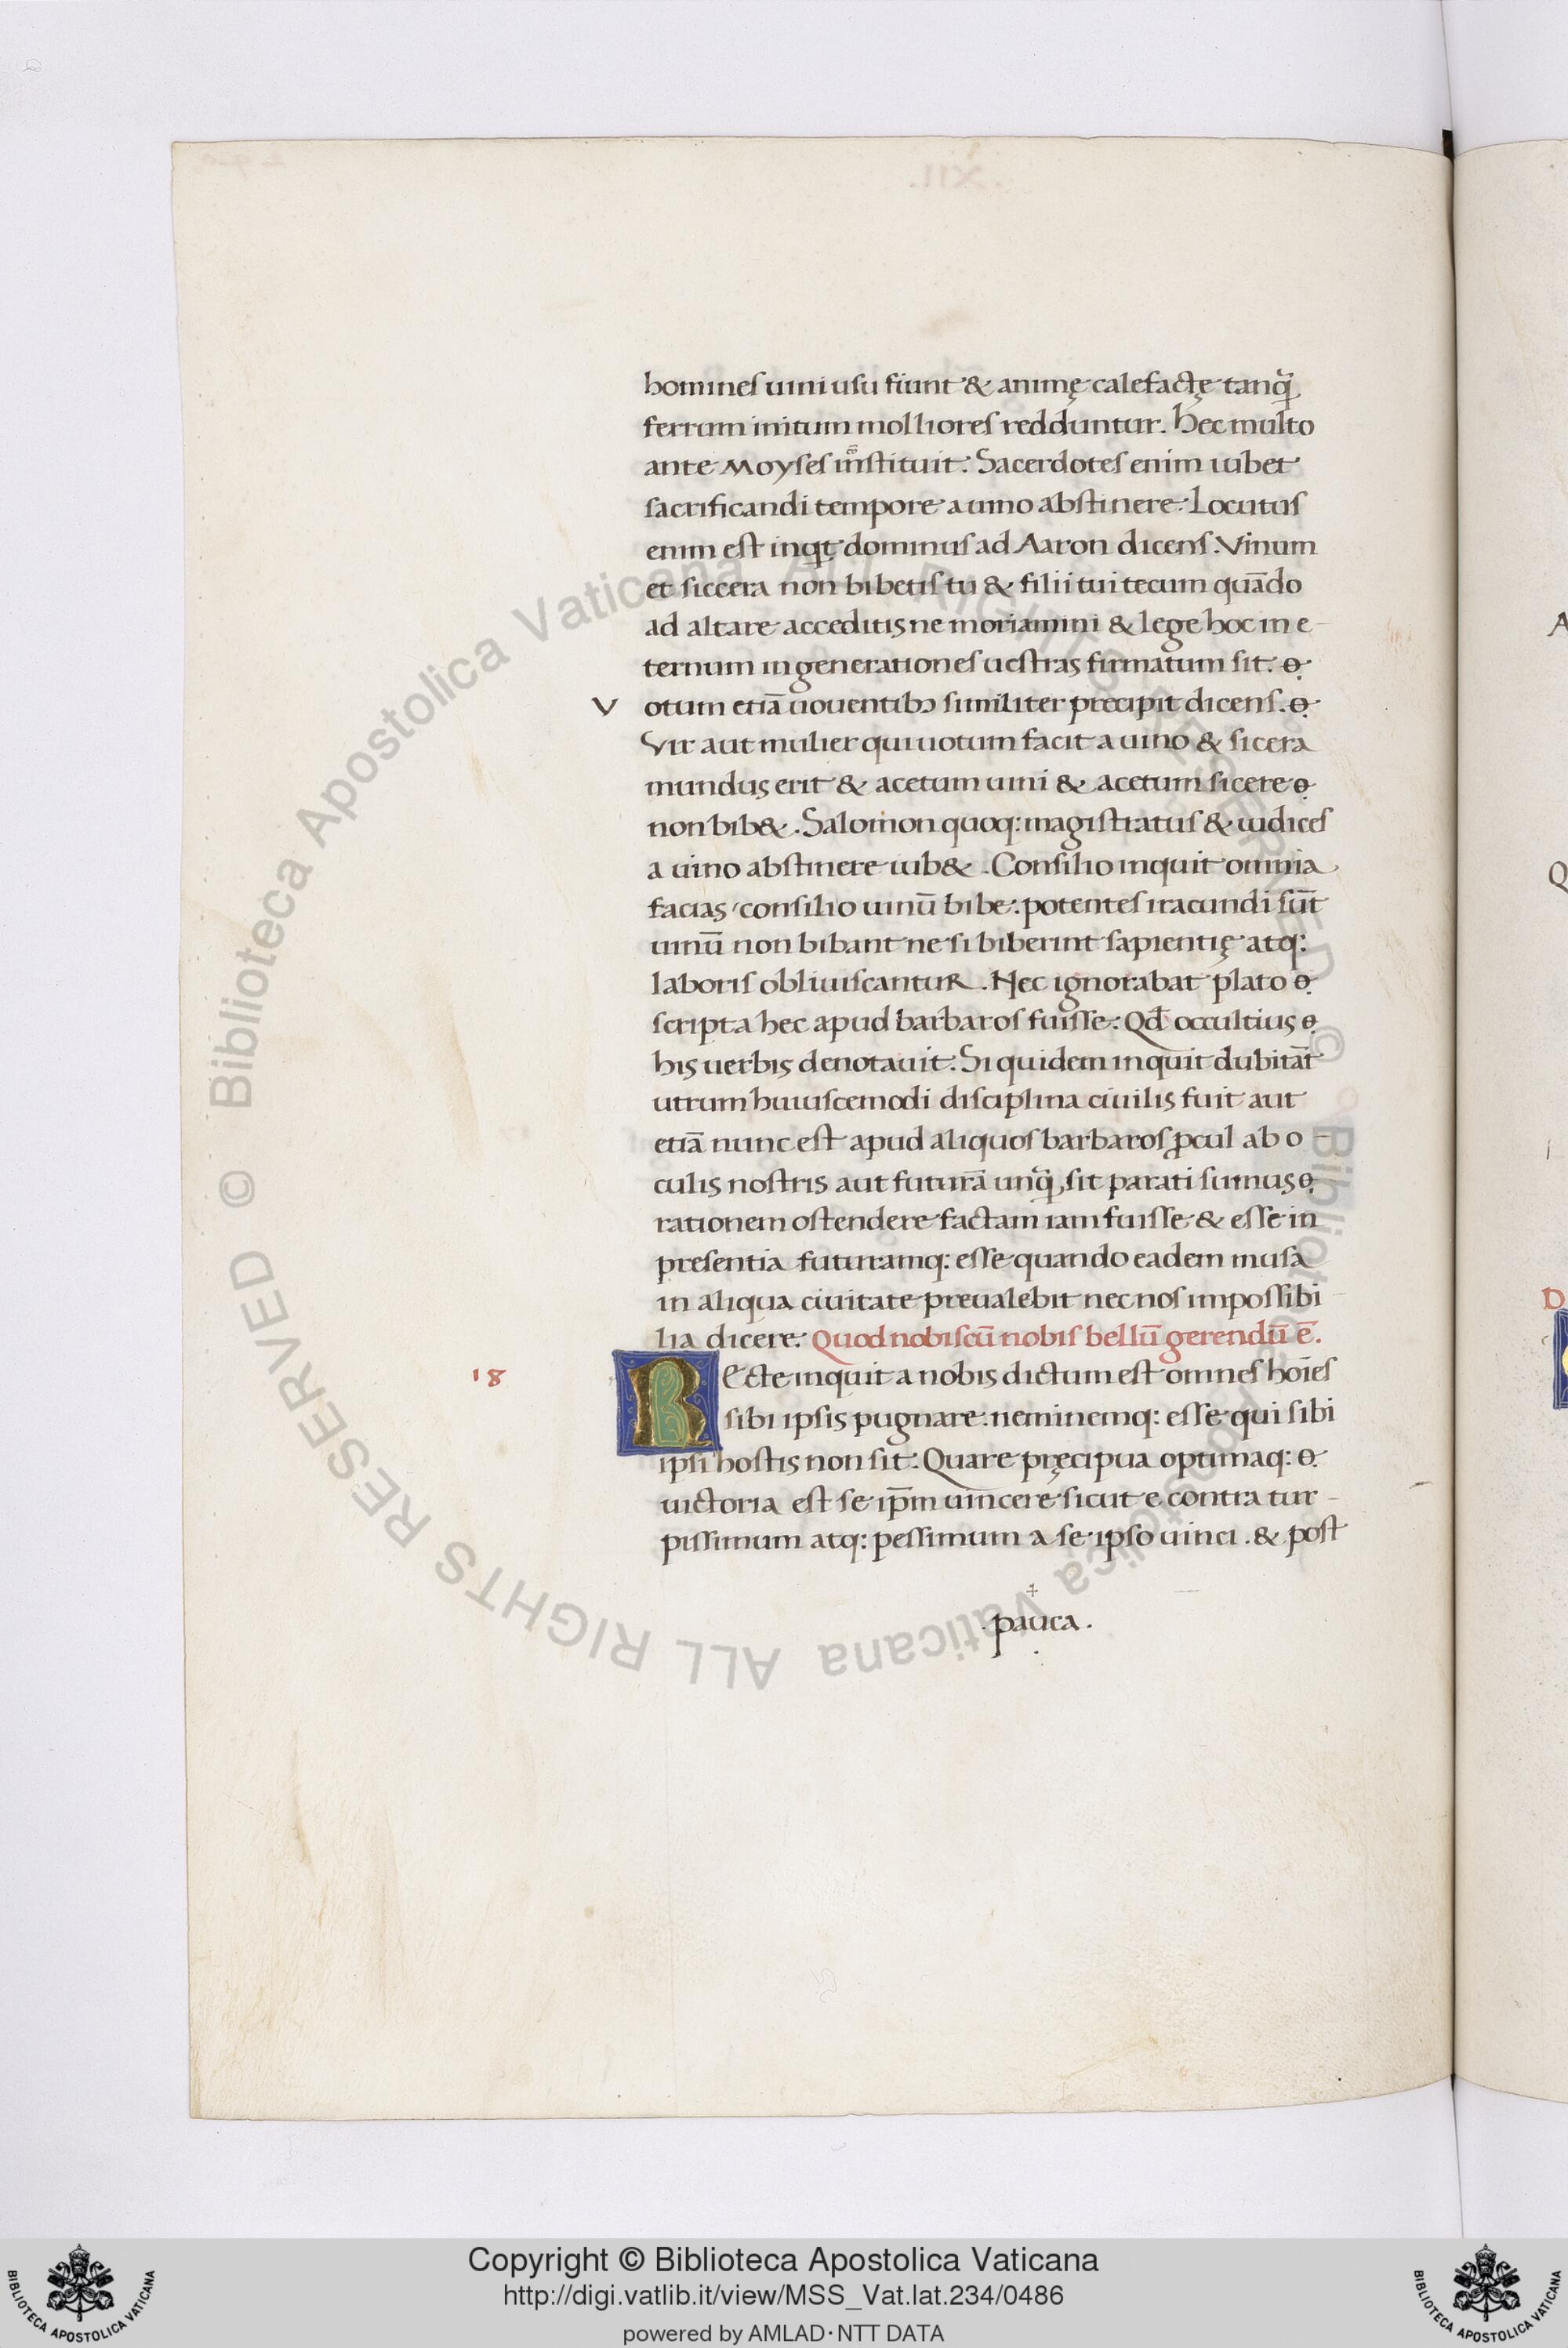 homines uini usu fiunt & animę calefactę tanq̃
ferrum initum molliores redduntur. Hec multo
ante Moyses instituit: Sacerdotes enim iubet
sacrificandi tempore a uino abstinere: Locutus
enim est inqt dominus ad Aaron dicens. Vinum
et siccera non bibetis tu & filii tui tecum quādo
ad altare acceditis ne moriamini & lege hoc in e-
ternum in generationes uestras firmatum sit: ɵ
V otum etiā uouentibꝫ similiter precipit dicens. ɵ
Vir aut mulier qui uotum facit a uino & sicera
mundus erit & acetum uini & acetum sicere ɵ
non bib&. Salomon quoq: magistratus & iudices
a uino abstinere iub&. Consilio inquit omnia
facias consilio uinū bibe: potentes iracundi sūt
uinū non bibant ne si biberint sapientię atq:
laboris obliuiscantur. Nec ignorabat plato ɵ
scripta hec apud barbaros fuisse: Qđ occultius ɵ
his uerbis denotauit: Si quidem inquit dubitāt
utrum huiuscemodi disciplina ciuilis fuit aut
etiā nunc est apud aliquos barbaros ꝓcul ab o-
culis nostris aut futurā unq̃ sit parati sumus ɵ
rationem ostendere factam iam fuisse & esse in
presentia futuramq: esse quando eadem musa
in aliqua ciuitate preualebit nec nos impossibi
lia dicere: Quod nobiscū nobis bellū gerendū ē.
18 Recte inquit a nobis dictum est omnes hoīes
sibi ipsis pugnare: neminemq: esse qui sibi
ipsi hostis non sit: Quare pręcipua optimaq: ɵ
uictoria est se ip̄m uincere sicut e contra tur-
pissimum atq: pessimum a se ipso uinci. & post
.pauca.
A
Q
D
© Biblioteca Apostolica Vaticana ALL RIGHTS RESERVED © Biblioteca Apostolica Vaticana ALL RIGHTS RESERVED
Copyright © Biblioteca Apostolica Vaticana
http://digi.vatlib.it/view/MSS_Vat.lat.234/0486
powered by AMLAD·NTT DATA
BIBLIOTECA APOSTOLICA VATICANA
BIBLIOTECA APOSTOLICA VATICANA